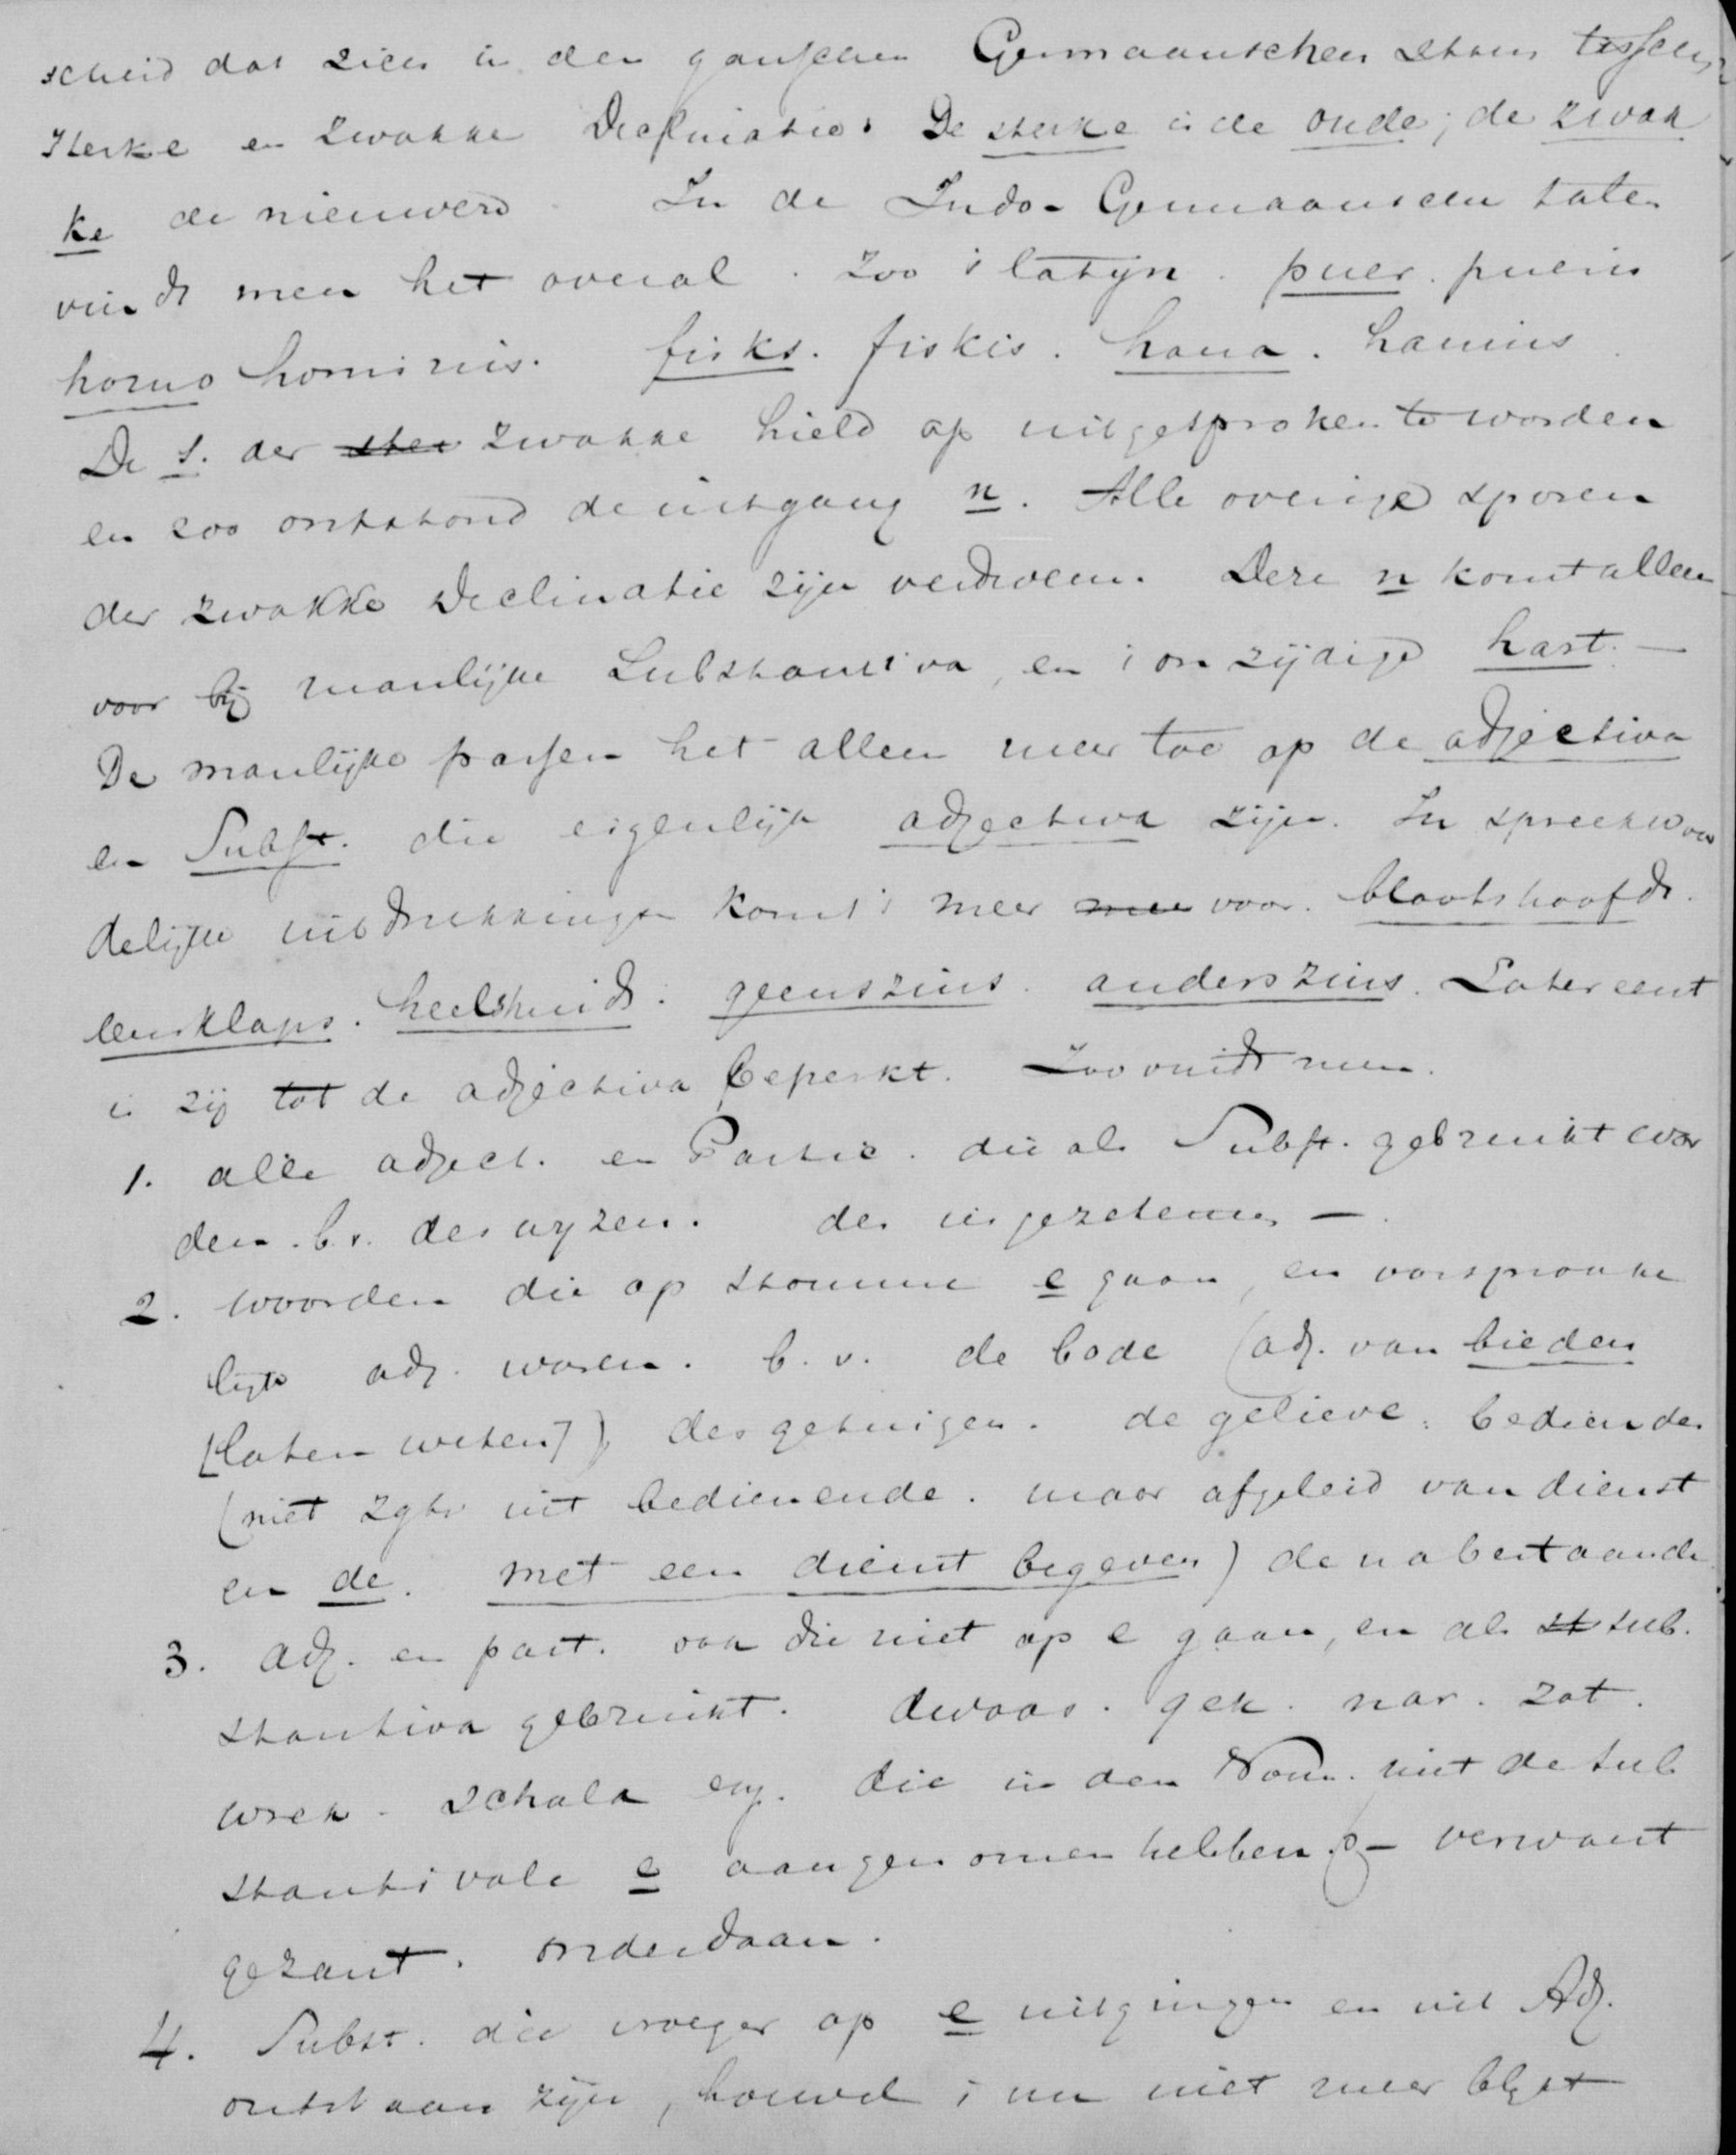 scheid dat zien in den ganschen Germaanschen stam tusschen
sterke en zwakke Declinatie. De sterke is de oude; de zwak
ke de nieuwere. In de Indo-Germaansche talen
vindt men het overal. Zoo i latijn. puer. pueris
homo hominis. fisks. fiskis. hana. hanins.
De s. der ster zwakke hield op uitgesproken te worden
en zoo ontstond de uitgang n. Alle overige sporen
der zwakke declinatie zijn verdwenen. Deze n komt alleen
voor bij manlijke Substantiva, en i onzijdige hart. —
De manlijke passen het alleen meer toe op de adjectiva
en Subst. die eigenlijk adjectiva zijn. In spreekwoor
delijke uitdrukkingen komt i meer mee voor. blootshoofds.
eensklaps. heelshuids. geenszins. anderszins. Later eerst
is zij tot de adjectiva beperkt. Zoo vindt men.
1. alle adject. en Partic. die als Subst. gebruikt wor
den. b.v. des wijzen. des ingezetenen —.
2. woorden die op stomme e gaan, en oorspronke
lijk adj. waren. b.v. de bode (adj. van bieden
[laten weten]) des getuigen. de gelieve. bediende.
(niet zgbr uit bedienende. maar afgeleid van dienst
en de. met een dienst begeven) de nabestaande.
3. Adj. en part. die niet op e gaan, en als st sub.
stantiva gebruikt. dwaas. gek. nar. zot.
vrek. schalk enz. die in den Nom. niet de sub
stantivale e aangenomen hebben – verwant
gezant. onderdaan.
4. Subst. die vroeger op e uitgingen en uit Adj.
ontstaan zijn, hoewel i nu niet meer blijkt